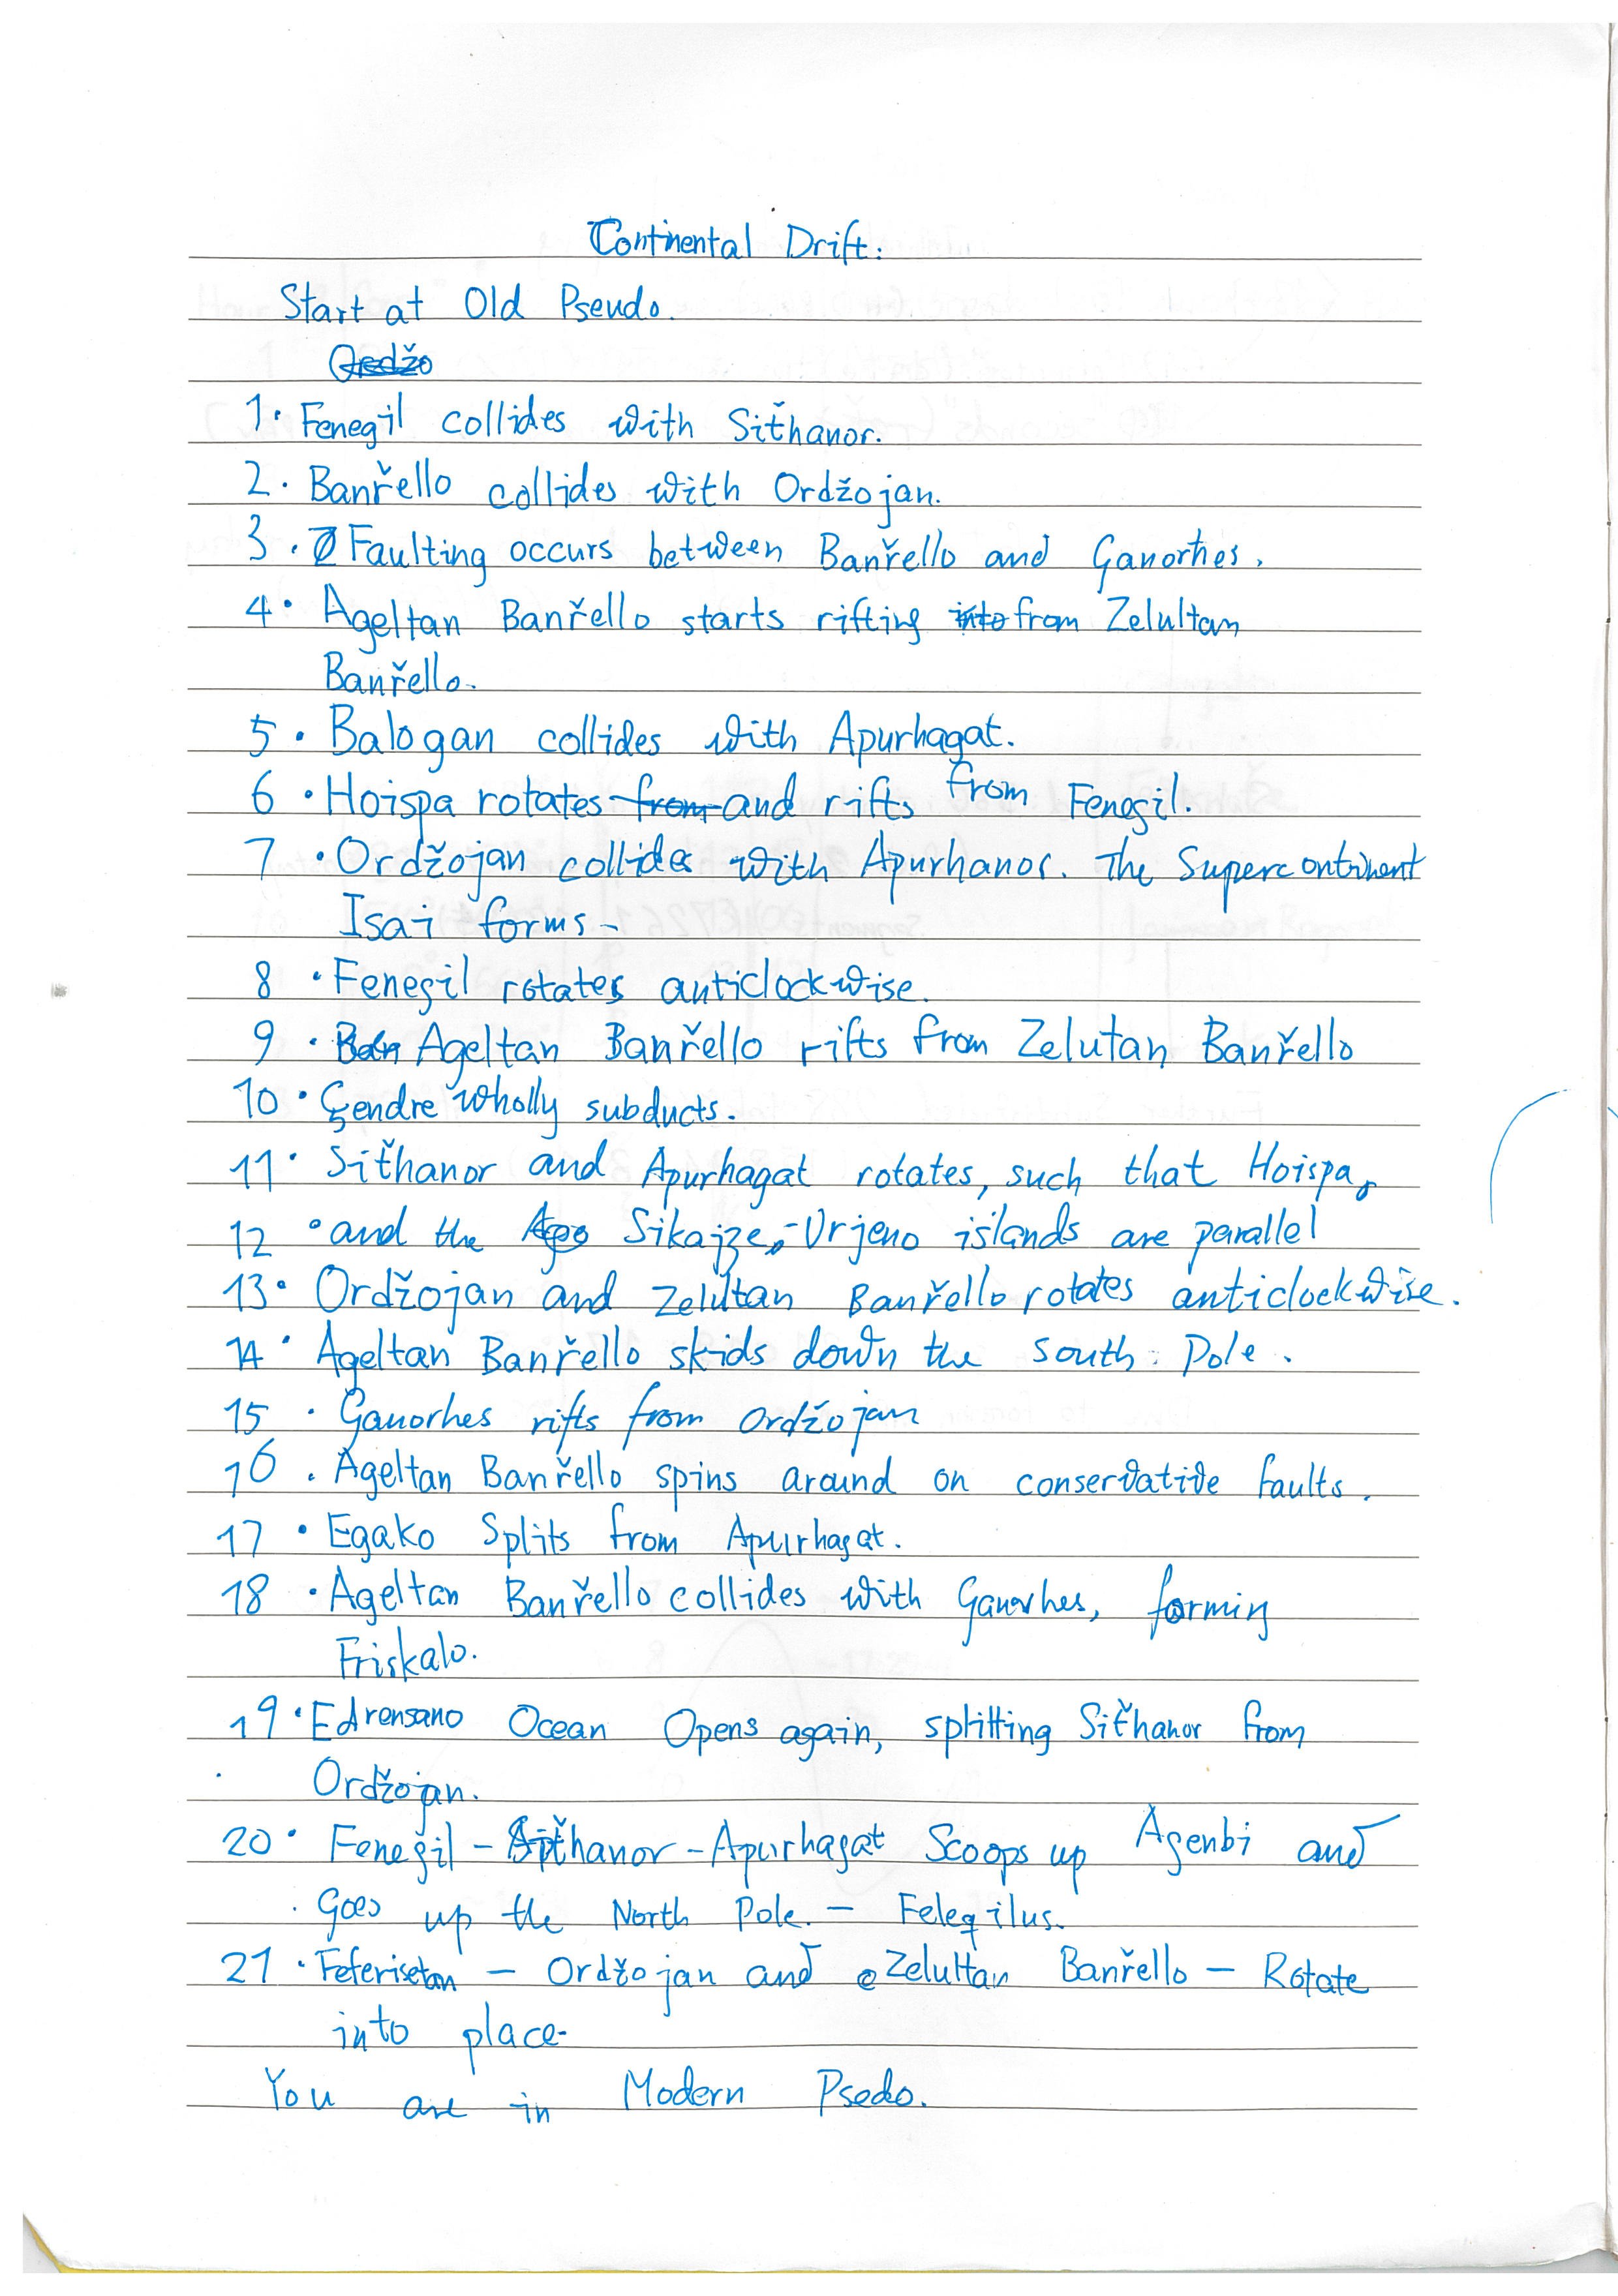 Continental Drift:
Start at Old Pseudo.
1. Fenegil collides with Sitȟanor.
2. Banřello collides with Ordžojan.
3. Faulting occurs between Banřello and Ganorhes.
4. Ageltan Banřello starts rifting from Zelultan
Banřello.
5. Balogan collides with Apurhagat.
6. Hoispa rotates and rifts from Fenegil.
7. Ordžojan collides with Apurhanor. The Supercontinent
Isai forms-
8. Fenegil rotates anticlockwise.
9. Ageltan Banřello rifts from Zelutan Banřello
10. Şendre wholly subducts.
11. Sitȟanor and Apurhagat rotates, such that Hoispa,
12. and the Sikajze,-Vrjeno islands are parallel
13. Ordžojan and Zelultan Banřello rotates anticlockwise.
14. Ageltan Banřello skids down the south Pole.
15. Ganorhes rifts from Ordžojan
16. Ageltan Banřello spins around on conservative faults.
17. Egako Splits from Apurhagat.
18. Ageltan Banřello collides with Ganorhes, forming
Friskalo.
19. Edrensano Ocean Opens again, splitting Sitȟanor from
Ordžojan.
20. Fenegil - Sitȟanor - Apurhagat Scoops up Agenbi and
Goes up the North Pole. - Felegilus.
21. Feferisetan - Ordžojan and Zelultan Banřello - Rotate
into place-
You are in Modern Psedo.